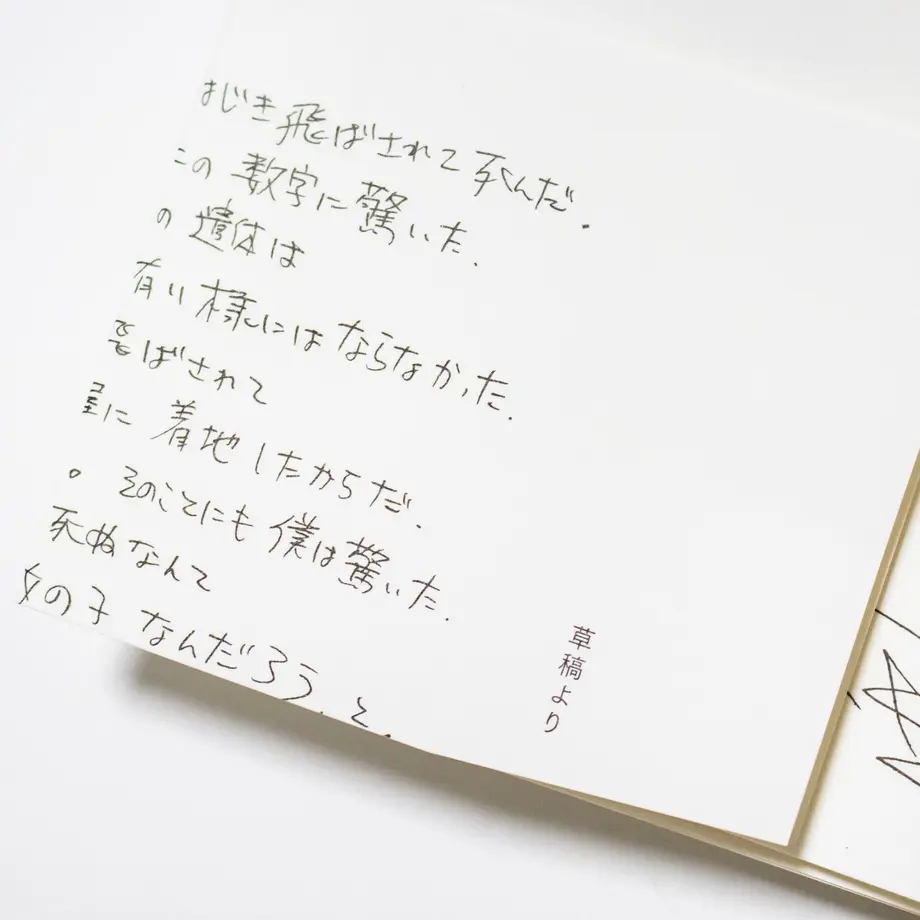 はじき飛ばされて死んだ.
この数字に驚いた.
の遺体は
有り様にはならなかった.
飛ばされて
に着地したからだ.
。そのことにも僕は驚いた.
死ぬなんて
女の子なんだろう、と.
草稿より